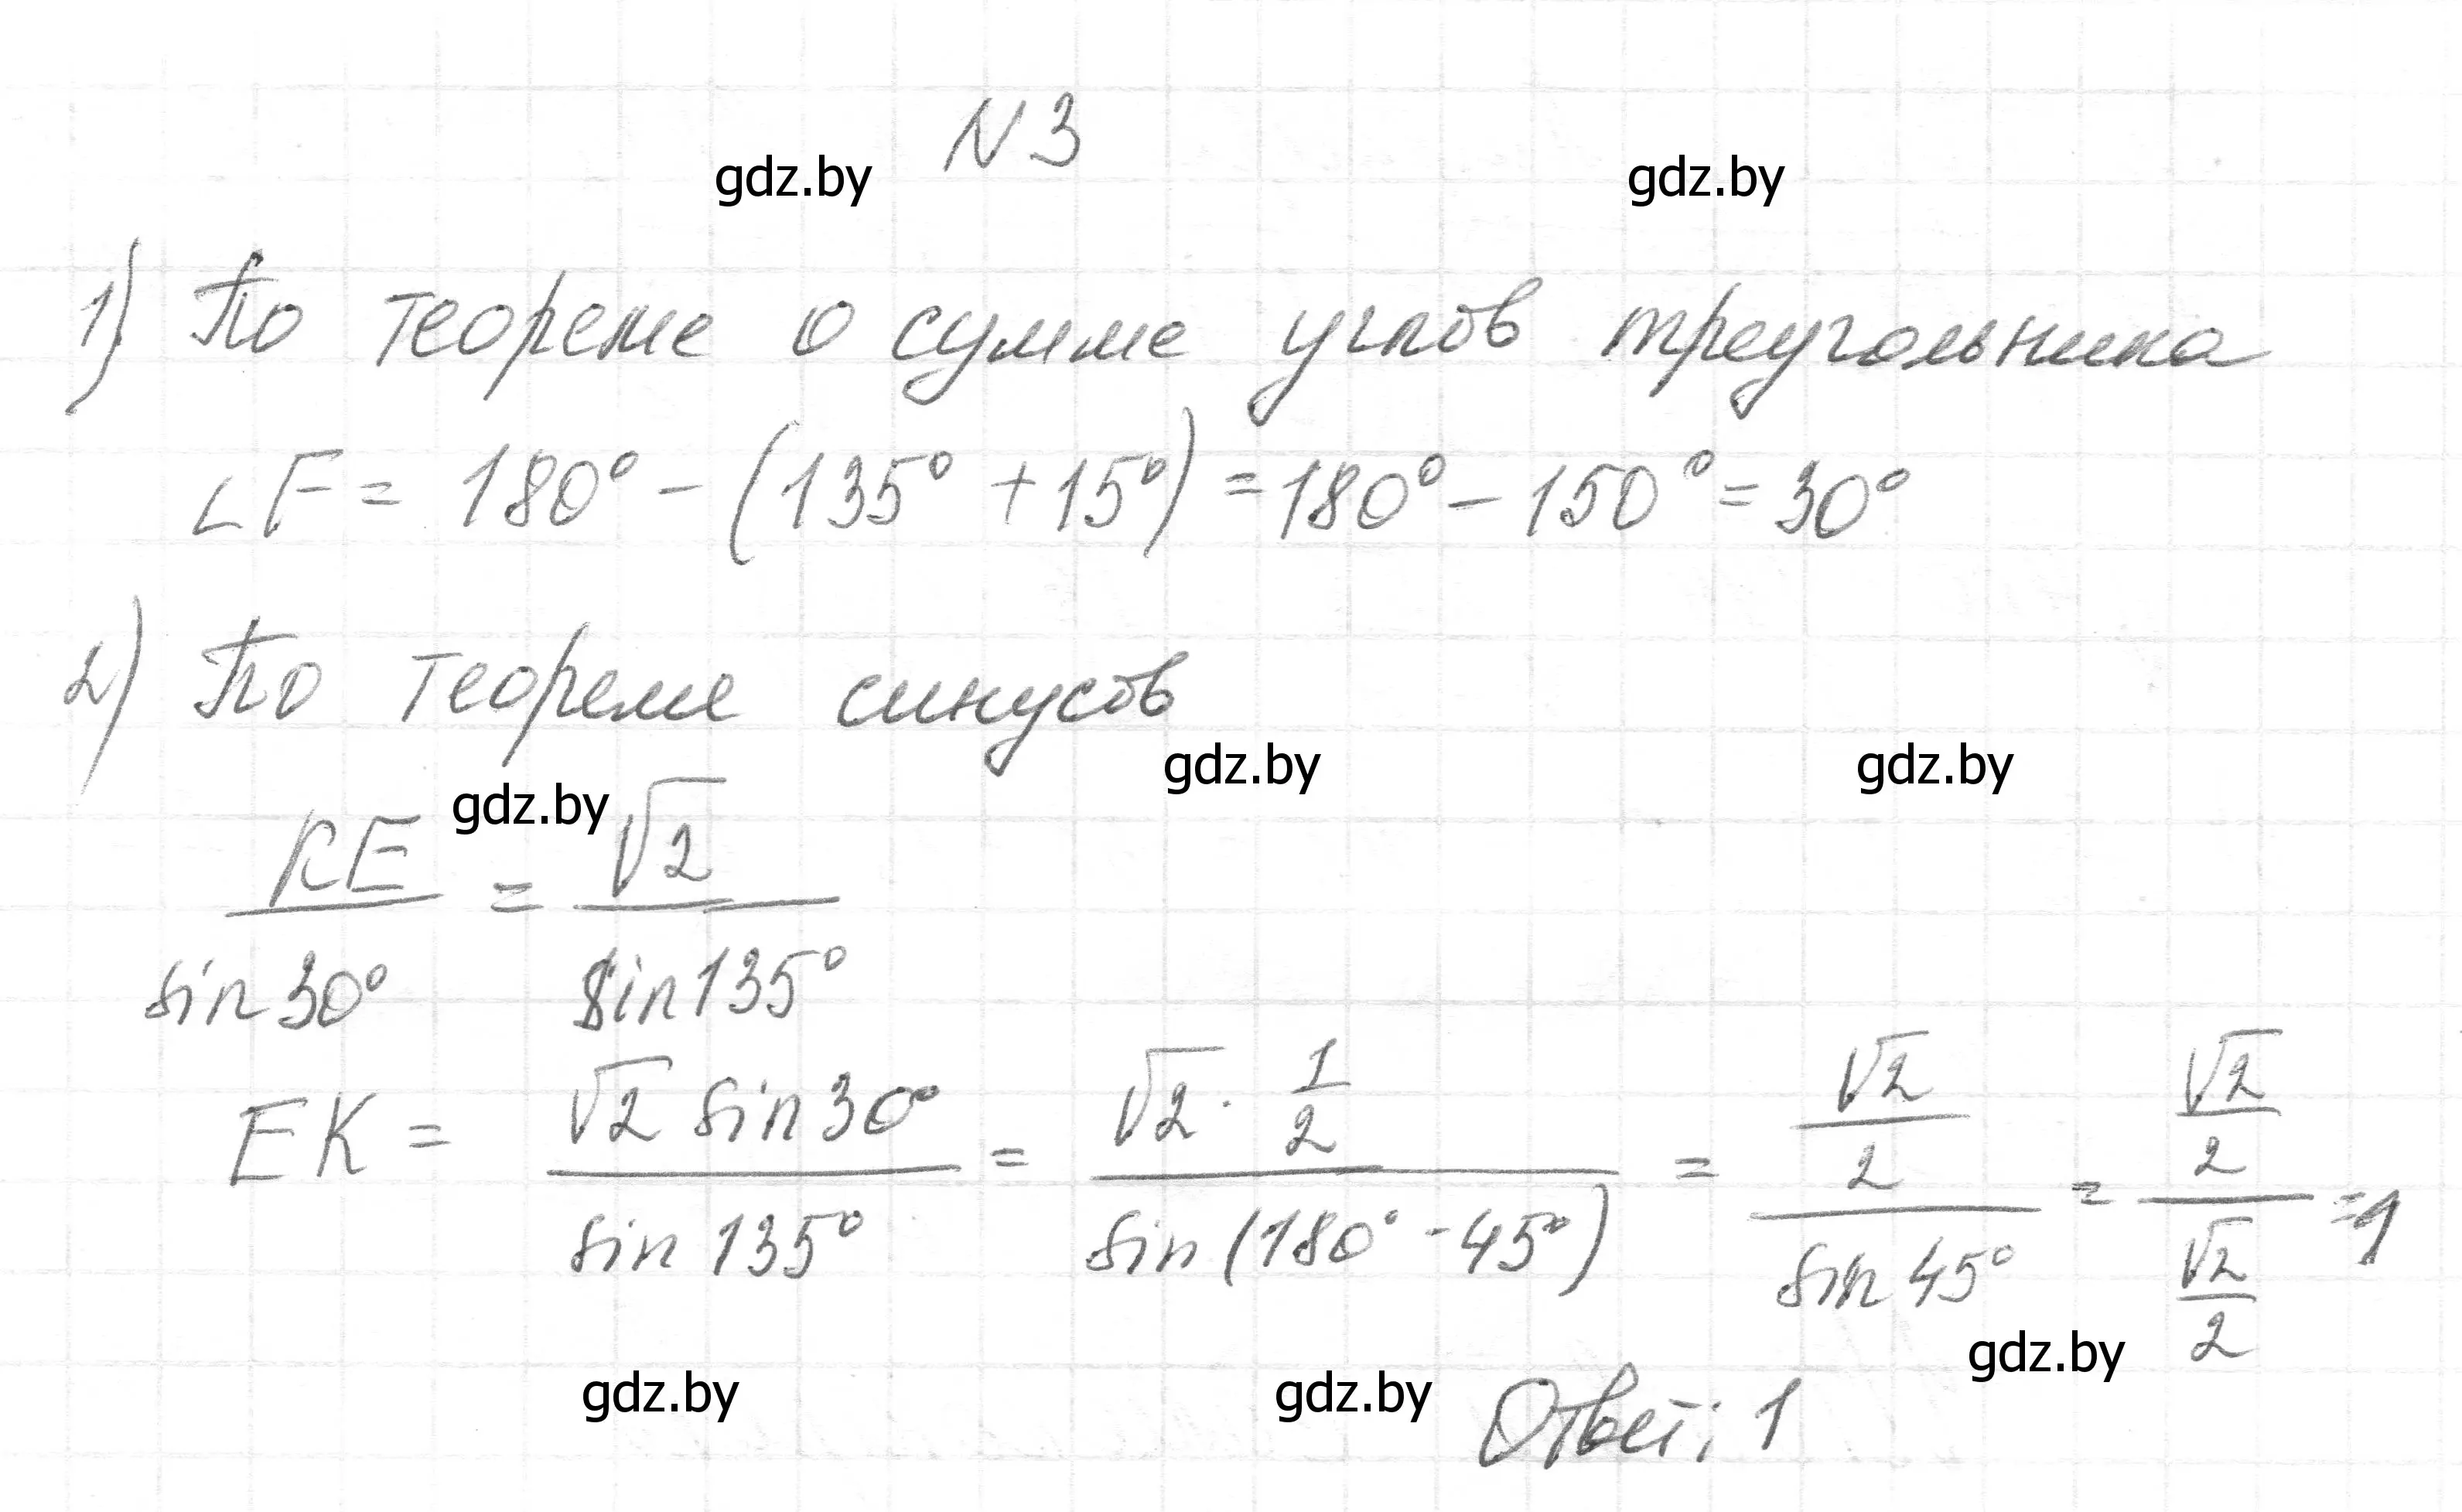 N 3
gdz.by gdz.by
1) По теореме о сумме углов треугольника
∠F = 180° - (135° + 15°) = 180° - 150° = 30°
2) По теореме синусов
gdz.by gdz.by gdz.by
KE / sin 30° = √2 / sin 135°
EK = √2 sin 30° / sin 135° = √2 · 1/2 / sin (180° - 45°) = √2/2 / sin 45° = √2/2 / √2/2 = 1
gdz.by gdz.by gdz.by
Ответ: 1